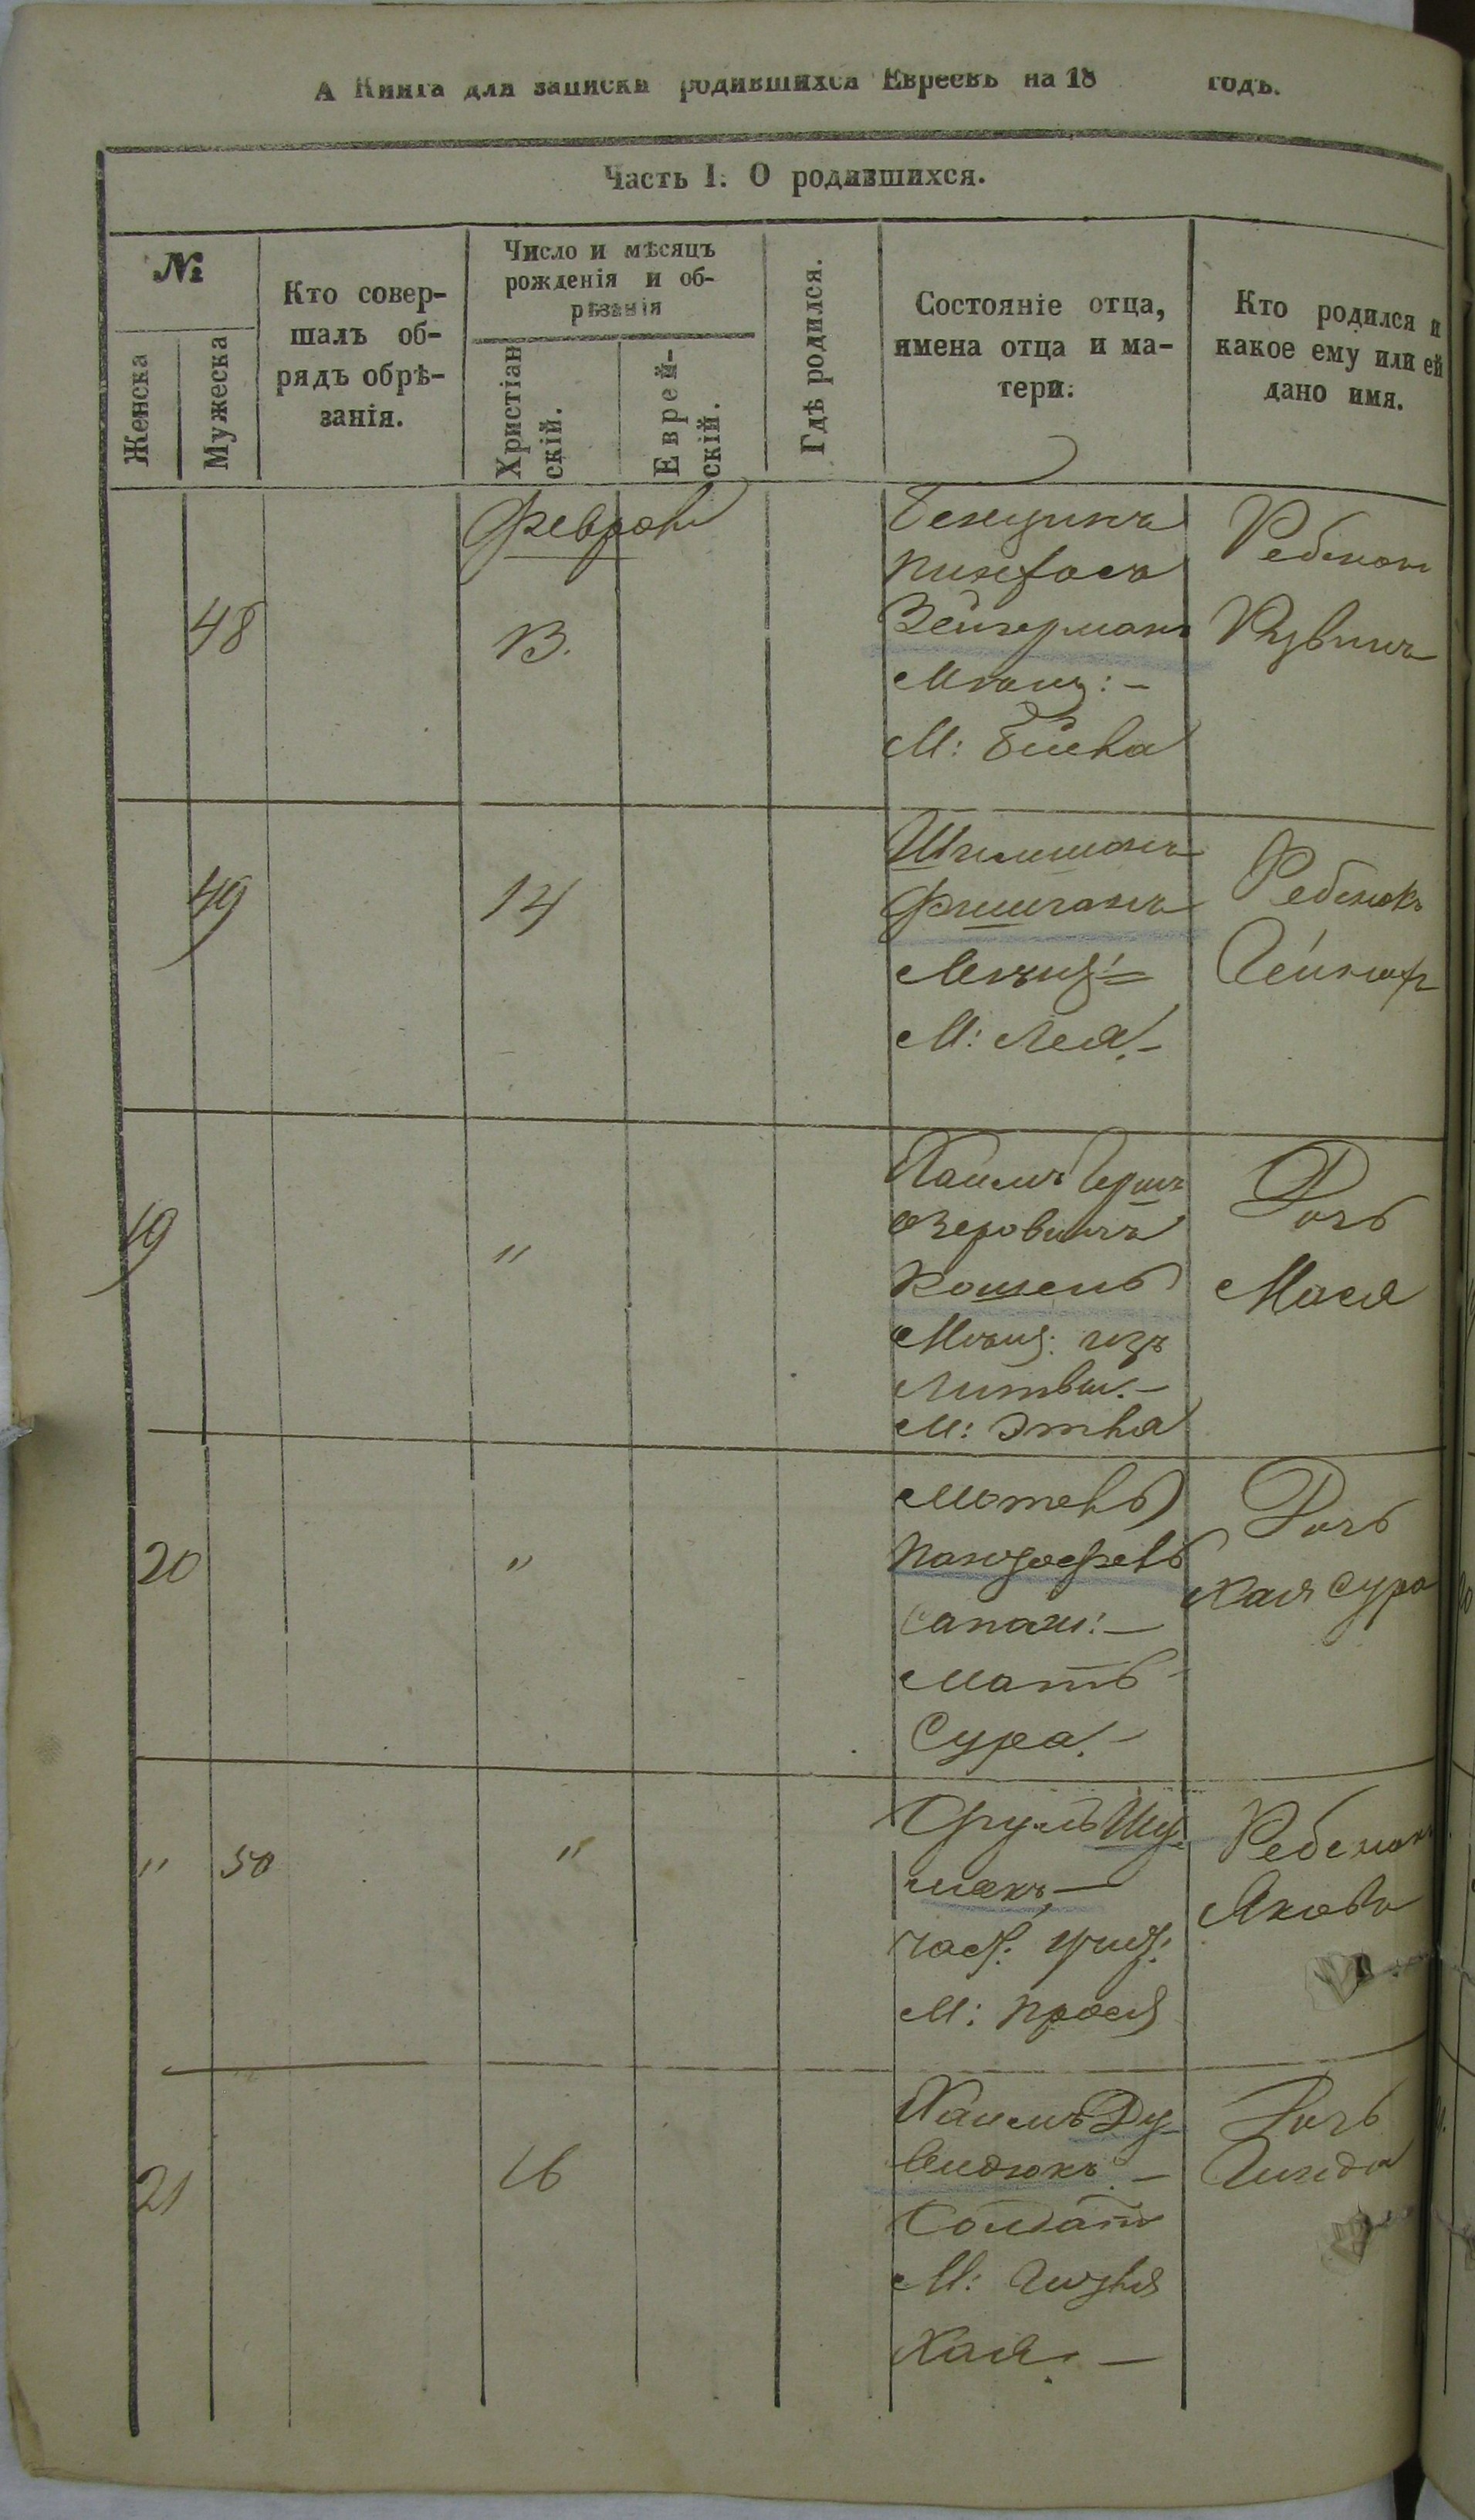 А Книга для записки родившихся Евреевъ на 18 годъ.
Часть I. О родившихся.
№
Женска
Мужеска
Кто совер-
шалъ об-
рядъ обрѣ-
занія.
Число и мѣсяцъ
рожденія и об-
рѣзанія
Христіан
скій.
Еврей-
скій.
Гдѣ родился.
Состояніе отца,
имена отца и ма-
тери.
Кто родился и
какое ему или ей
дано имя.
48
13.
Пинхасъ
Зейгерманъ
Мѣщ: –
М:
Ребенокъ
Рувинъ
49
14
Фишманъ
Мѣщ: =
М: Лея. –
Ребенокъ
19
"
Хаимъ Гершъ
Озеровичъ
Кошель
Мѣщ: изъ
Литвы. –
М: Этля
Дочь
Мася
20
"
Мотель
сапож: –
Мать
Сура. –
Дочь
Хая Сура
" 50
"
Сруль Шу-
макъ, –
М: Прося
Ребенокъ
Яковъ
21
16
Хаимъ Ду-
видюкъ –
Солдатъ
М:
Хая. –
Дочь